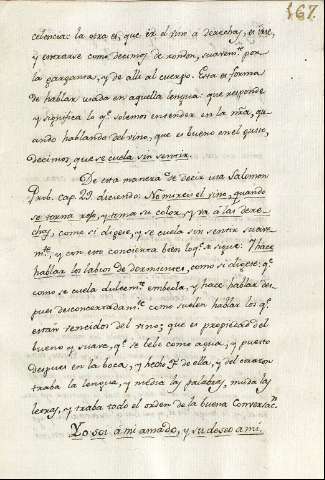 167.
celencia: la otra es, que ir el vino a derechas, es irse,
y entrarse como decimos de rondon, suavemte. por
la garganta, y de alli al cuerpo. Esta es forma
de hablar usada en aquella lengua: que responde
y significa lo q.e solemos entender en la nra, qu-
ando hablando del vino, que es bueno en el gusto,
decimos, que se cuela sin sentir.
De esta manera de decir usa Salomon
Prob. cap. 23. diciendo: No mires el vino, quando
se torna rojo, y toma su color, y va à las dere-
chas, como si digese, y se cuela sin sentir suave
mte, y con esto concierta bien lo q.e se sigue: Y hace
hablar los labios de dormientes, como si digese: q.e
como se cuela dulcemte. embeoda, y hace hablar des-
pues desconcertadamte como suelen hablar los q.e
estan vencidos del vino; que es propiedad del
bueno y suave, q.e se bebe como agua, y puesto
despues en la boca, y hecho Sr. de ella, y del corazon
traba la lengua, y media las palabras, muda las
letras, y traba todo el orden de la buena Conversacn.
Yo soi a mi amado, y su deseo a mi.